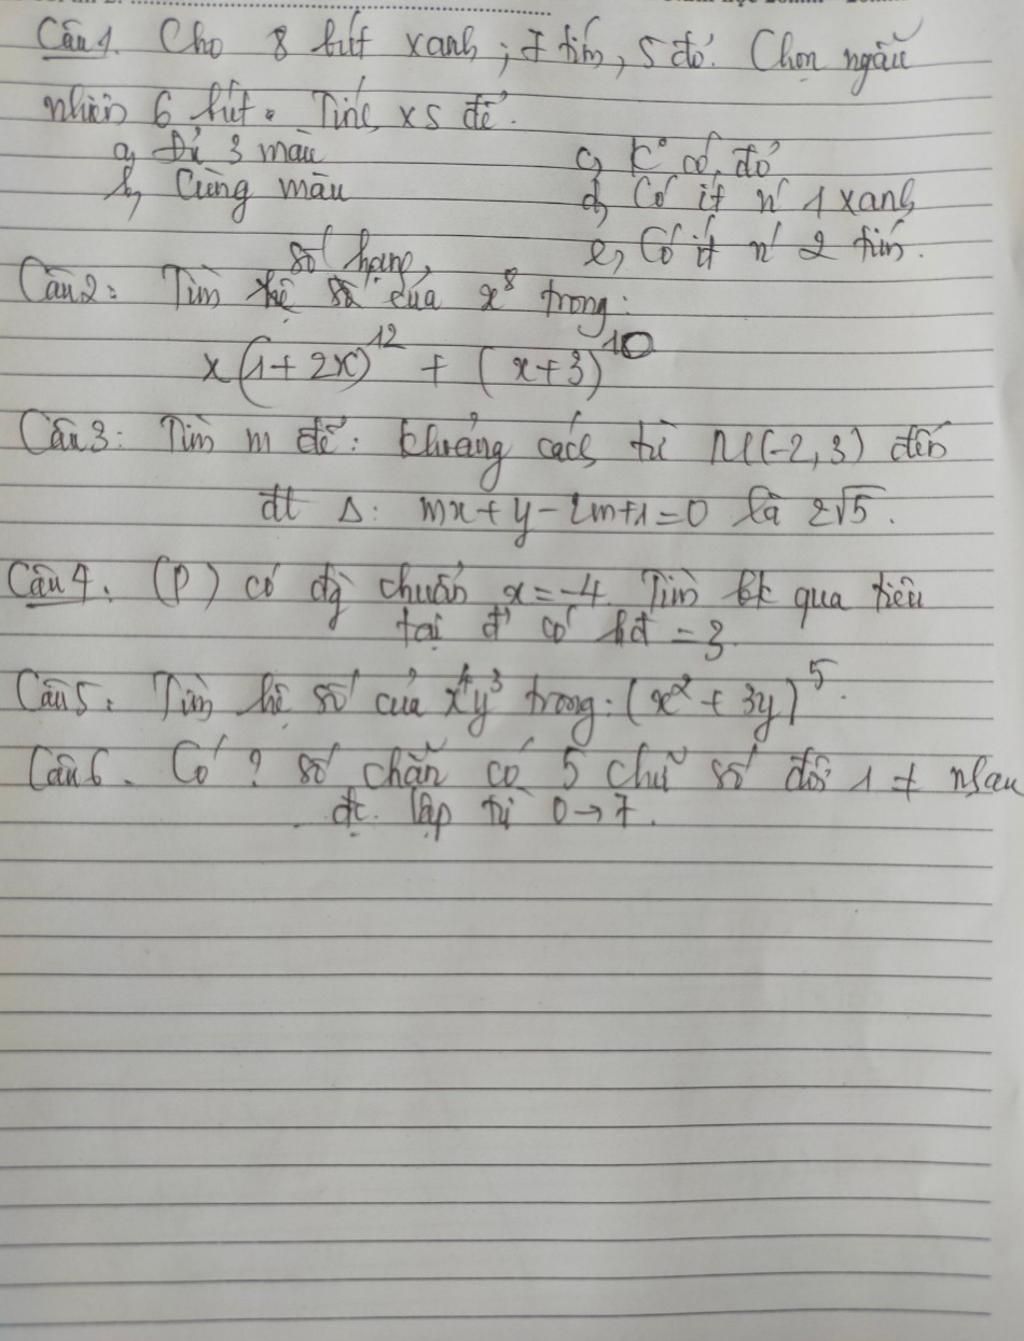 Câu 1. Cho 8 bút xanh, 7 tím, 5 đỏ. Chọn ngẫu
nhiên 6 bút. Tính xs để.
a, Đủ 3 màu
b, Cùng màu
c, K° có đỏ
d, Có ít n' 1 xanh
e, Có ít n' 2 tím.
Câu 2: Tìm số hạng của x⁸ trong:
x(1+2x)¹² + (x+3)¹⁰
Câu 3: Tìm m để: khoảng cách từ M(-2,3) đến
đt Δ: mx+y-2m+1=0 là 2√5.
Câu 4. (P) có đg chuẩn x=-4. Tìm bk qua tiêu
tại đ' có hđ = 3.
Câu 5: Tìm hệ số của x⁴y³ trong: (x²+3y)⁵.
Câu 6. Có ? số chẵn có 5 chữ số đôi 1 ≠ nhau
đc lập từ 0→7.